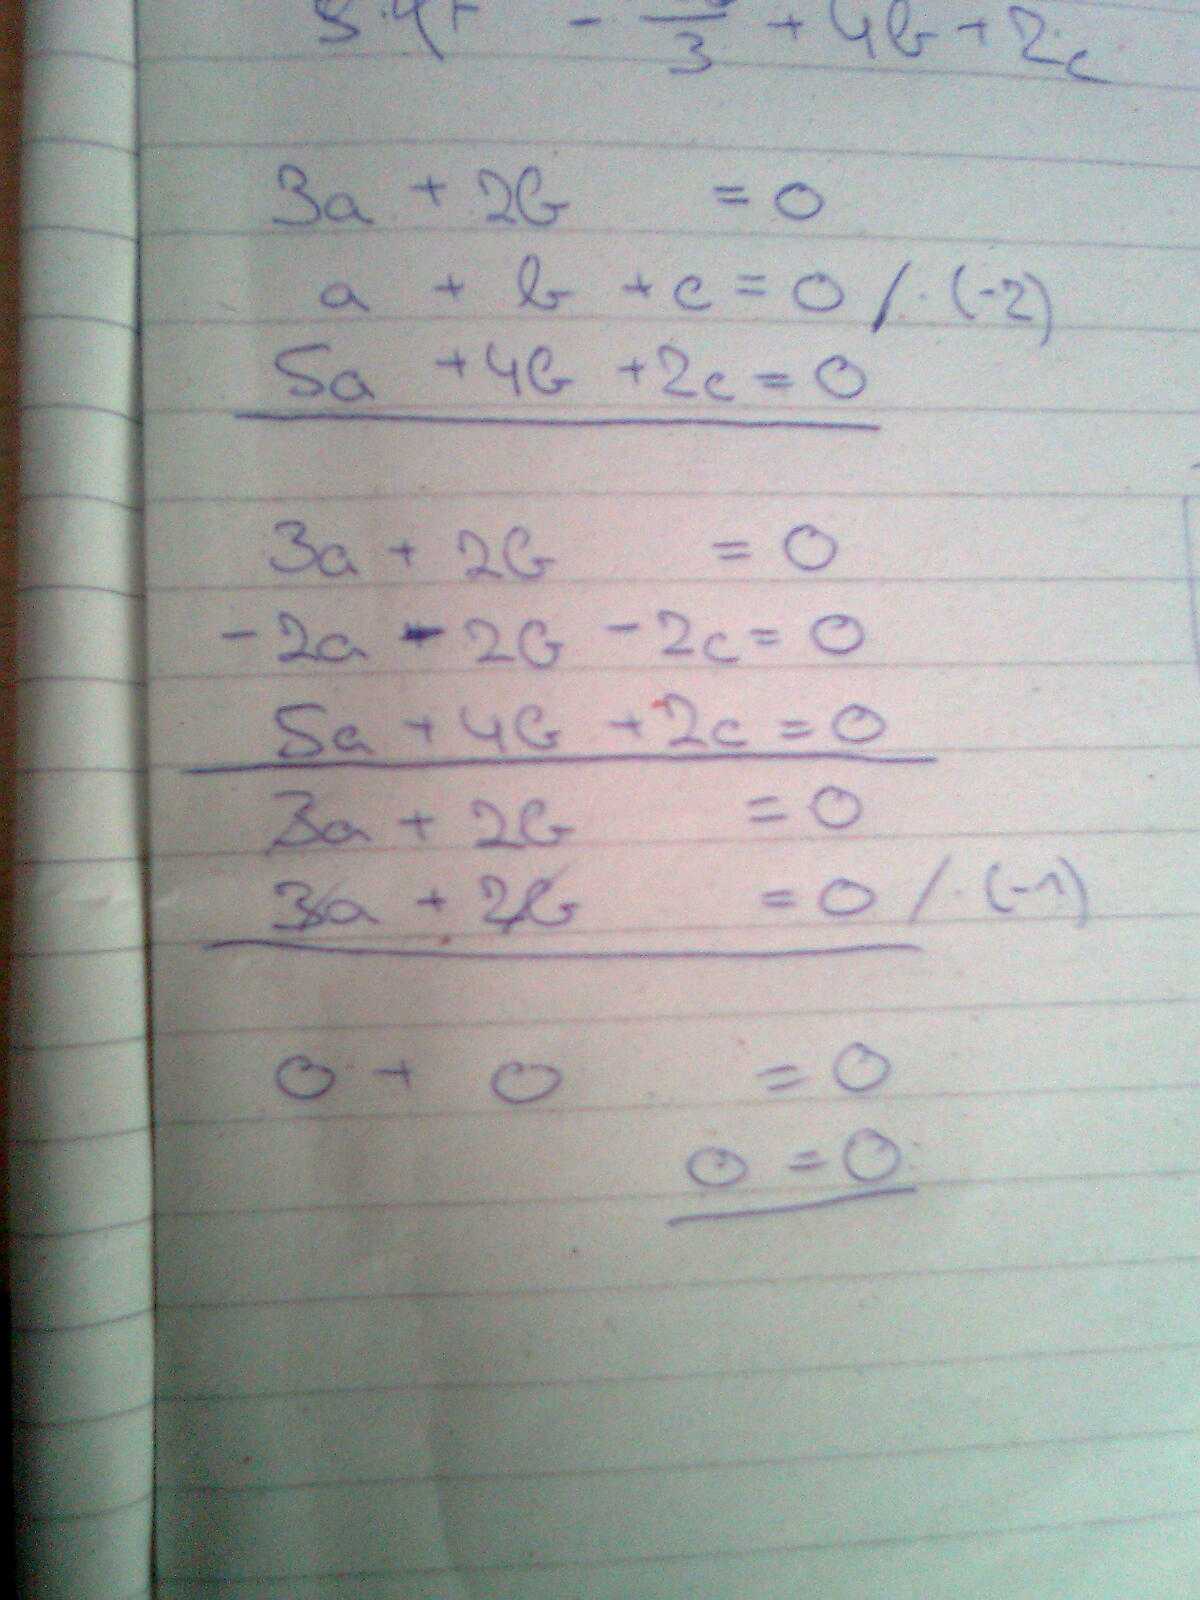 3 + 4b + 2c
3a + 2b = 0
a + b + c = 0 /·(-2)
5a + 4b + 2c = 0
3a + 2b = 0
-2a - 2b - 2c = 0
5a + 4b + 2c = 0
3a + 2b = 0
3a + 2b = 0 /·(-1)
0 + 0 = 0
0 = 0